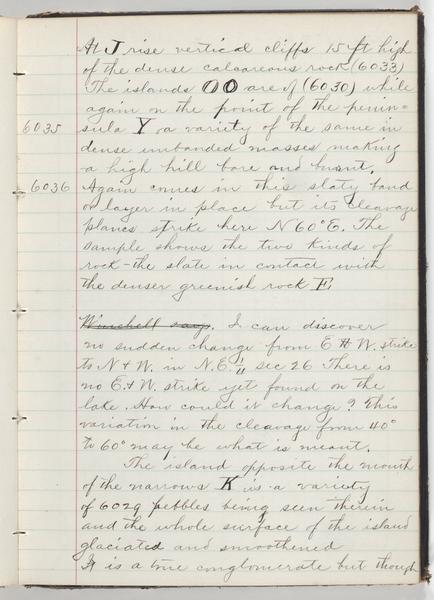 At J rise vertical cliffs 15 ft high
of the dense calcareous rock (6033)
The islands OO are of (6030) while
again on the point of the penin=
6035 sula Y a variety of the same in
dense unbanded masses making
a high hill bare and burnt.
6036 Again comes in this slaty band
or layer in place but its cleavage
planes strike here N 60° E. The
sample shows the two kinds of
rock - the slate in contact with
the denser greenish rock E

Winchell says. I can discover
no sudden change from E & W. strike
to N & W. in N.E. 1/4 sec 26 There is
no E. & W. strike yet found on the
lake. How could it change? This
variation in the cleavage from 40°
to 60° may be what is meant.
The island opposite the mouth
of the narrows K is a variety
of 6029 pebbles being seen therein
and the whole surface of the island
glaciated and smoothened
It is a true conglomerate but though